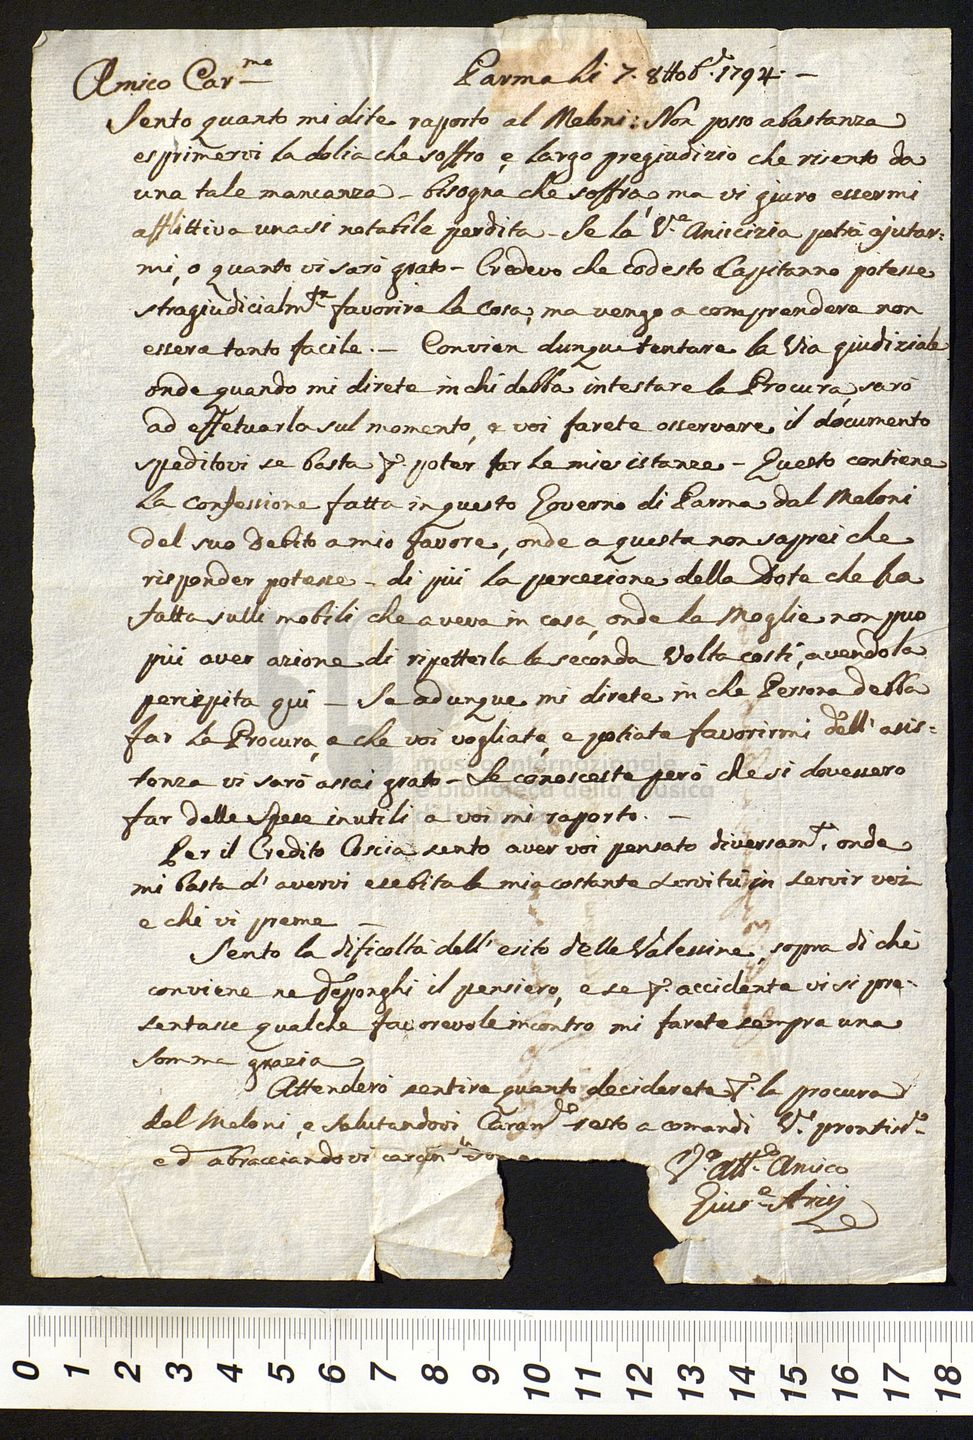 Amico Car.me Parma li 7. 8ttob.e 1794. —
Sento quanto mi dite raporto al Meloni: Non posso abastanza
esprimervi la dolia che soffro, e largo pregiudizio che risento da
una tale mancanza – bisogna che soffra, ma vi giuro essermi
afflittiva una si notabile perdita – Se la V.ra Amicizia potrà ajutar=
mi, o quanto vi sarò grato – Credevo che codesto Cappitanno potesse
stragiudicialm.te favorire la cosa, ma vengo a comprendere non
essere tanto facile. – Convien dunque tentare la Via giudiziale
onde quando mi direte in chi debba intestare la Procura, sarò
ad effetuarla sul momento, e voi farete osservare il documento
speditovi se basta p. poter far le mie istanze – Questo contiene
la confessione fatta in questo Governo di Parma dal Meloni
del suo debito a mio favore, onde a questa non saprei che
risponder potesse – di più la percezione della Dote che ha
fatta sulli mobili che aveva in casa, onde la Moglie non può
più aver azione di ripetterla la seconda Volta costì, avendola
percepita quì – Se adunque mi direte in che Persona debba
far la Procura, e che voi vogliate, e potiate favorirmi dell' asis=
tenza vi sarò assai grato – Se conosceste però che si dovessero
far delle spese inutili a voi mi raporto. –
Per il Credito Coscia sento aver voi pensato diversam.te, onde
mi basta d' avervi esebita la mia costante servitù in servir voi
e chi vi preme –
Sento la dificoltà dell' esito delle Valessine, sopra di che
conviene ne deponghi il pensiero, e se p. accidente vi si pre=
sentasse qualche favorevole incontro mi farete sempre una
somma grazia
Attenderò sentire quanto deciderete p. la procura
del Meloni, e salutandovi Caram.e resto a comandi V.ri prontis.o
ed abracciandovi caram.te sono
V.o aff.o Amico
Gius.e Arij
museo internazionale
e biblioteca della musica
di bologna
0 1 2 3 4 5 6 7 8 9 10 11 12 13 14 15 16 17 18